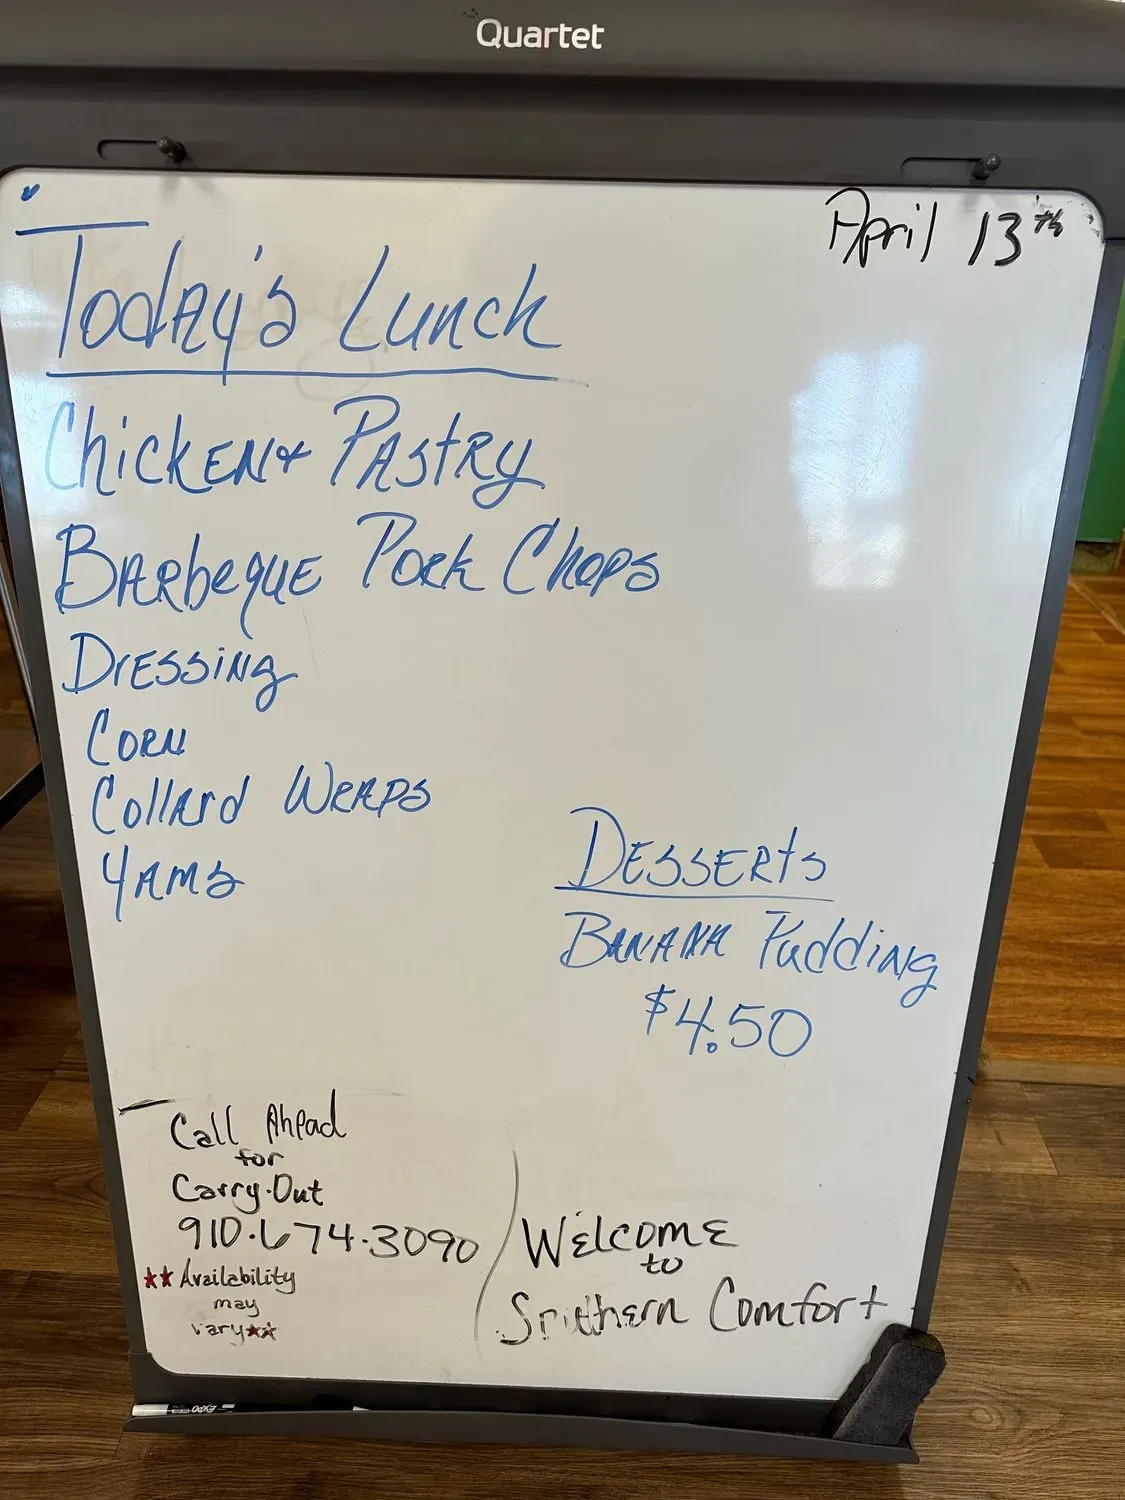 Quartet
April 13th
Today's Lunch
Chicken & Pastry
Barbeque Pork Chops
Dressing
Corn
Collard Wraps
Yams
Desserts
Banana Pudding
$4.50
Call Ahead
for
Carry-Out
910-674-3090
** Availability
may
vary**
Welcome
to
Southern Comfort
EXPO